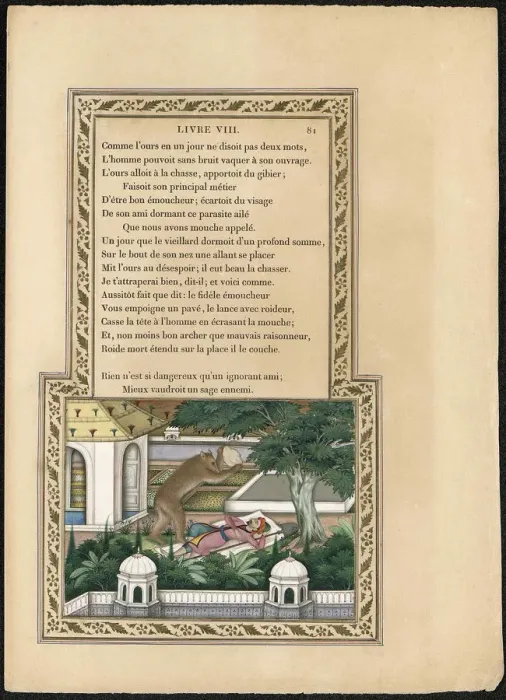 LIVRE VIII. 81
Comme l'ours en un jour ne disoit pas deux mots,
L'homme pouvoit sans bruit vaquer à son ouvrage.
L'ours alloit à la chasse, apportoit du gibier;
Faisoit son principal métier
D'être bon émoucheur; écartoit du visage
De son ami dormant ce parasite ailé
Que nous avons mouche appelé.
Un jour que le vieillard dormoit d'un profond somme,
Sur le bout de son nez une allant se placer
Mit l'ours au désespoir; il eut beau la chasser.
Je t'attraperai bien, dit-il; et voici comme.
Aussitôt fait que dit: le fidèle émoucheur
Vous empoigne un pavé, le lance avec roideur,
Casse la tête à l'homme en écrasant la mouche;
Et, non moins bon archer que mauvais raisonneur,
Roide mort étendu sur la place il le couche.
Rien n'est si dangereux qu'un ignorant ami;
Mieux vaudroit un sage ennemi.